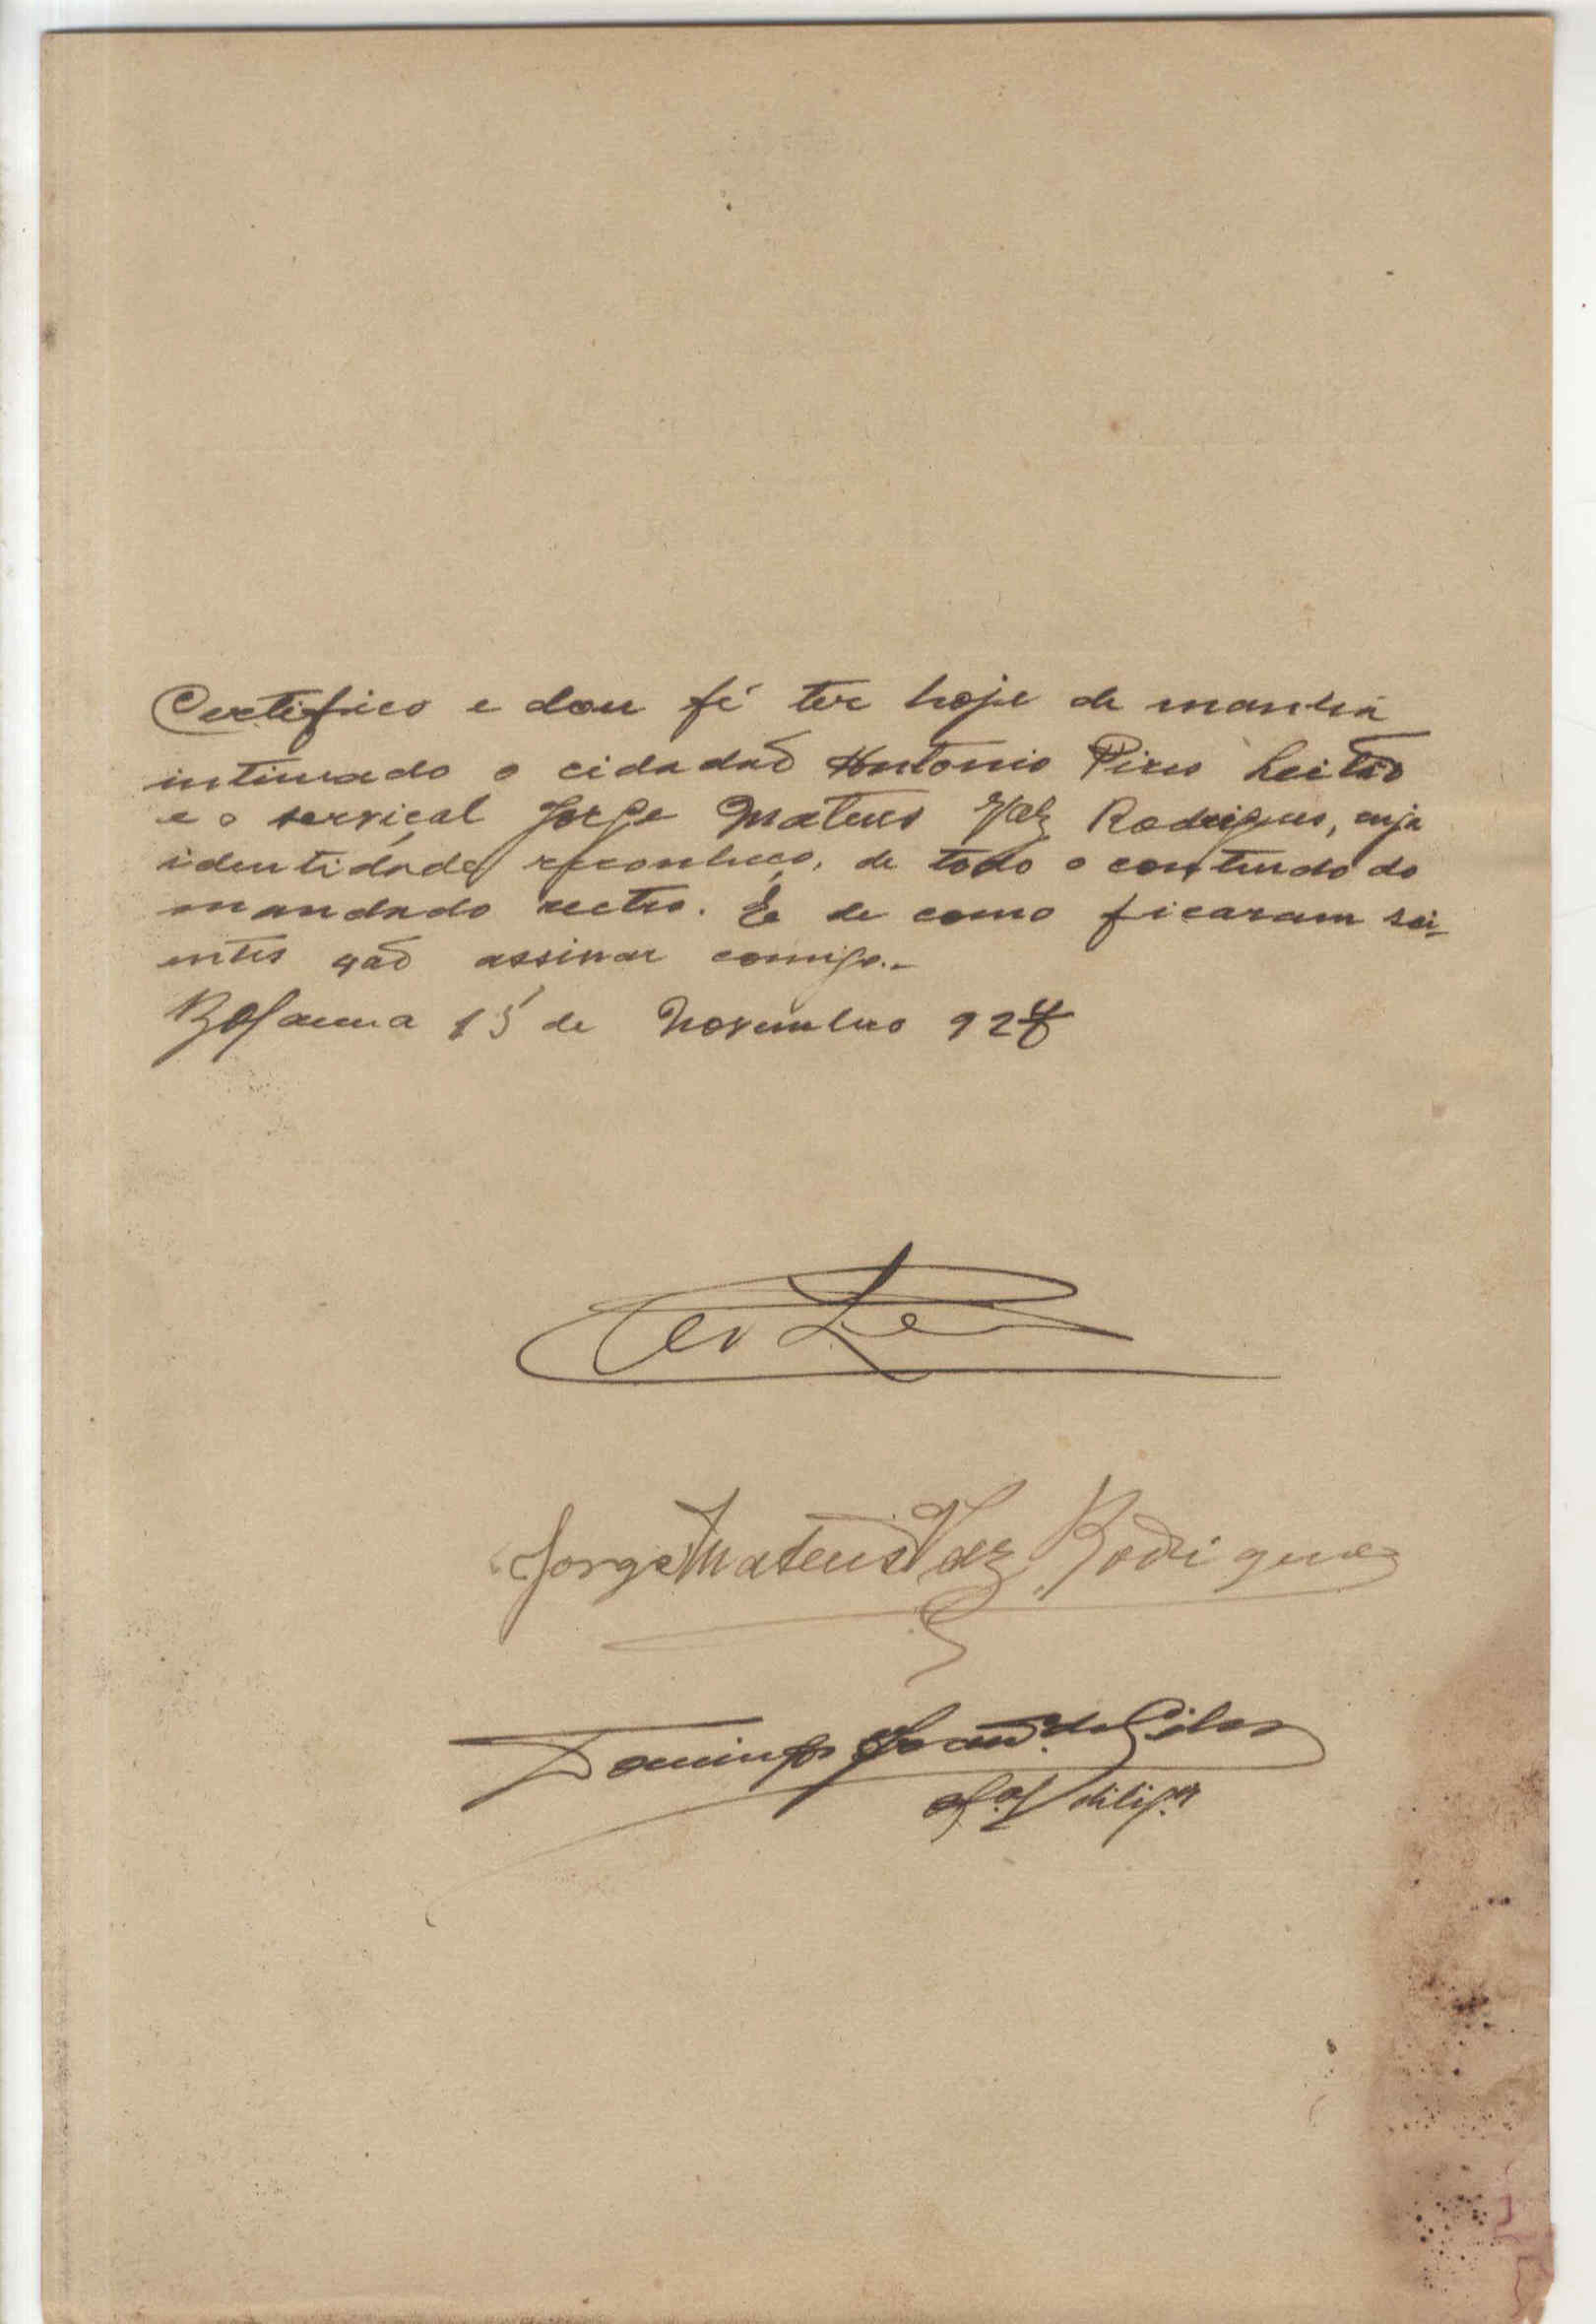 Certifico e dou fé ter hoje de manhã
intimado o cidadão Antonio Pires Leitão
e o serviçal Jorge Mateus Vaz Rodrigues, cuja
identidade reconheço, de todo o conteudo do
mandado rectro. E de como ficaram sci-
entes vão assinar comigo.-
Bolama 15 de Novembro 92
Jorge Mateus Vaz Rodrigues
Domingos João da Silva